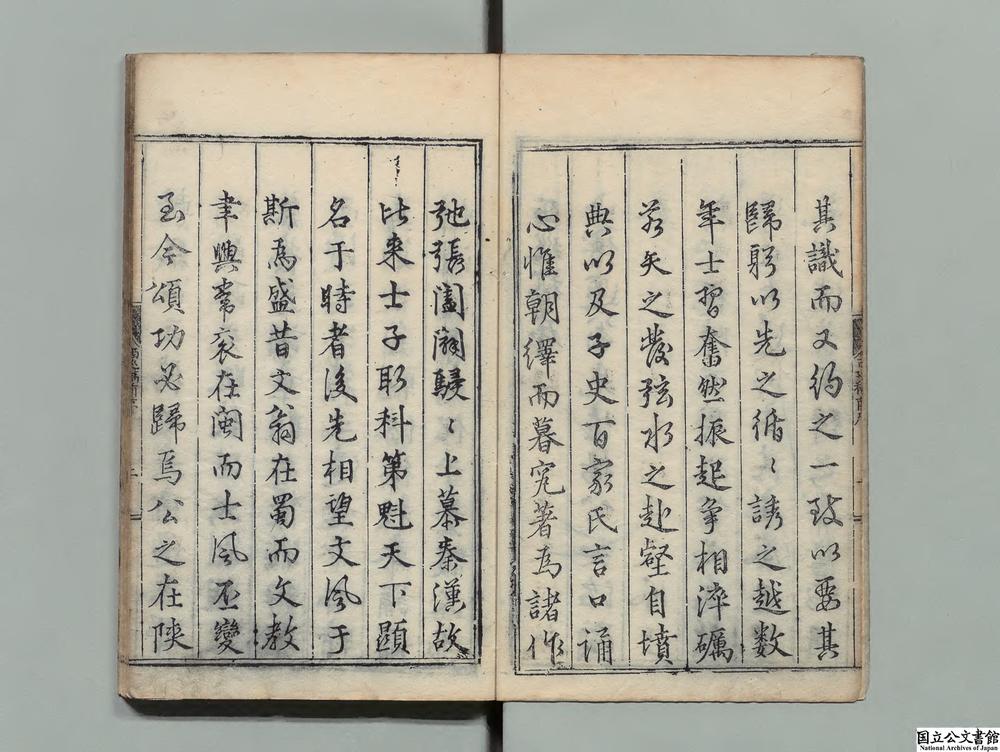 其識而又約之一致以要其
歸躬以先之循〻誘之越数
年士習奮然振起争相淬礪
若矢之發弦水之赴壑自墳
典以及子史百家氏言口诵
心惟朝繹而暮究著為諸作
弛張闔闢駸〻上慕秦漢故
比来士子取科第魁天下顯
名于時者後先相望文風于
斯為盛昔文翁在蜀而文教
聿興常衮在闽而士风丕變
至今頌功必歸焉公之在陝
国立公文書館
National Archives of Japan